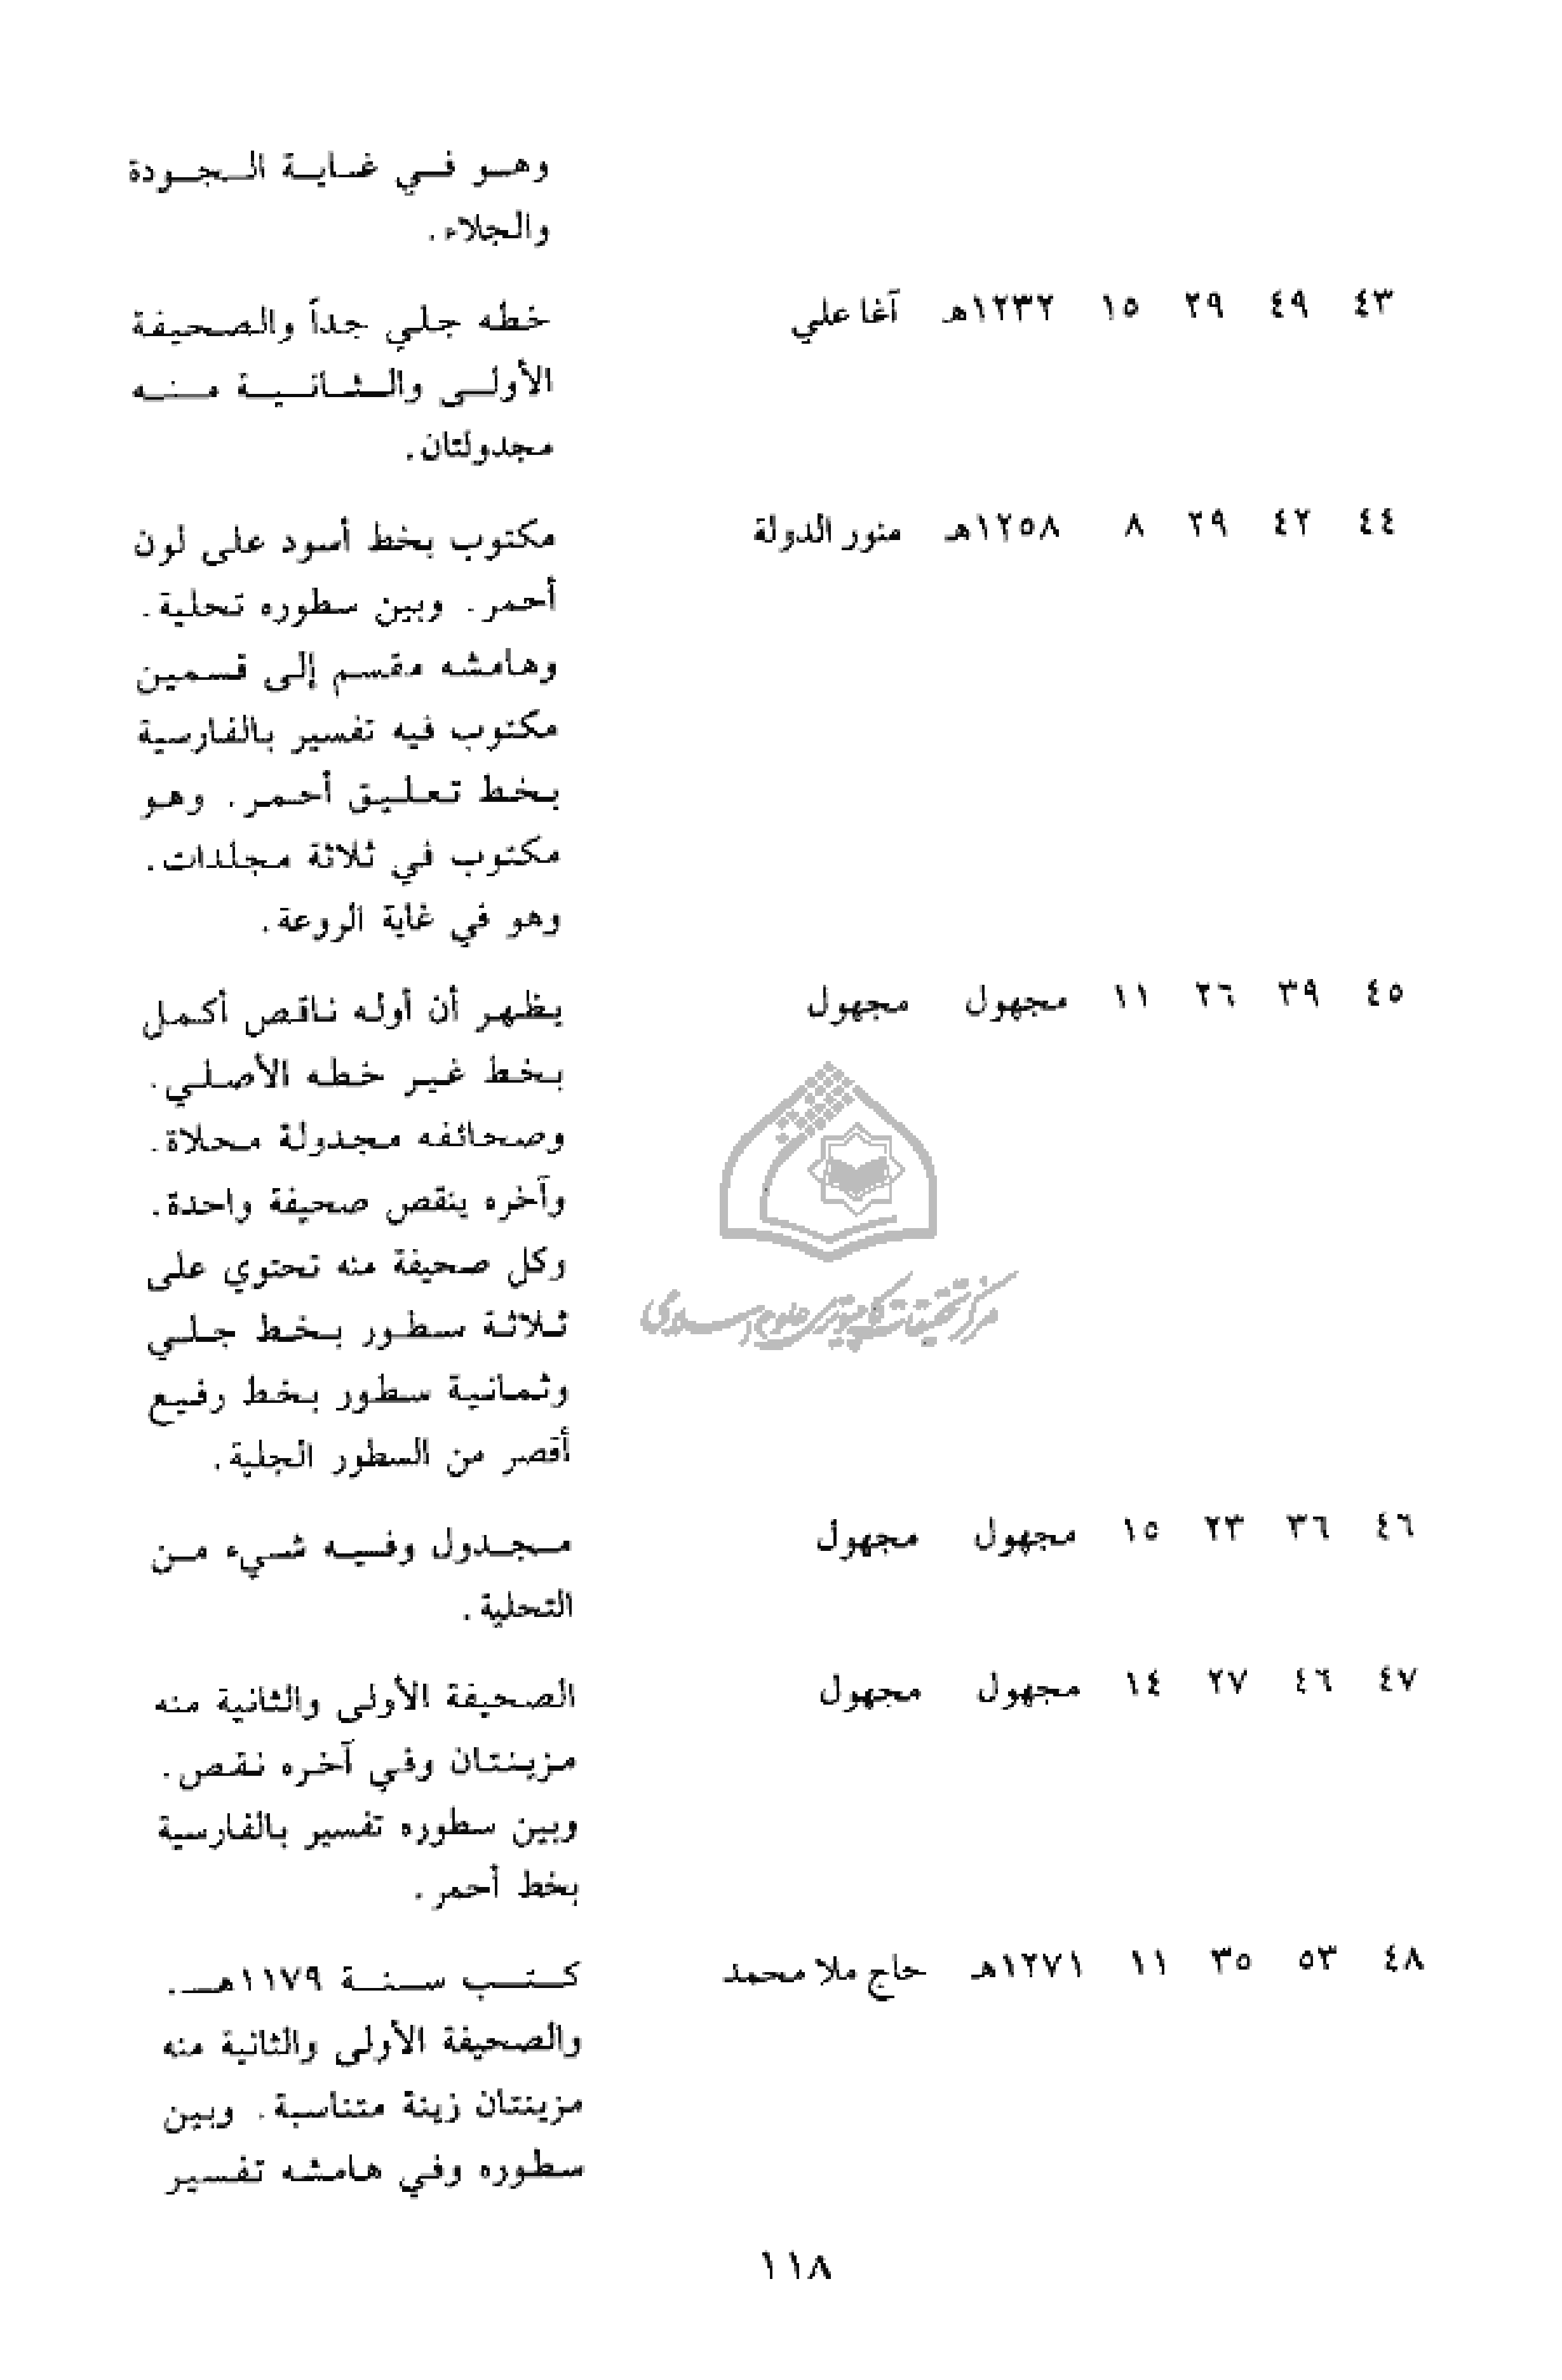 وهو في غاية الجودة
والجلاء.
٤٣ ٤٩ ٢٩ ١٥ ١٢٣٢هـ آغا علي خطه جلي جداً والصحيفة
الأولى والثانية منه
مجدولتان.
٤٤ ٤٢ ٢٩ ٨ ١٢٥٨هـ منور الدولة مكتوب بخط أسود على لون
أحمر. وبين سطوره تحلية.
وهامشه مقسم إلى قسمين
مكتوب فيه تفسير بالفارسية
بخط تعليق أحمر. وهو
مكتوب في ثلاثة مجلدات.
وهو في غاية الروعة.
٤٥ ٣٩ ٢٦ ١١ مجهول مجهول يظهر أن أوله ناقص أكمل
بخط غير خطه الأصلي.
وصحائفه مجدولة محلاة.
وآخره ينقص صحيفة واحدة.
وكل صحيفة منه تحتوي على
ثلاثة سطور بخط جلي
وثمانية سطور بخط رفيع
أقصر من السطور الجلية.
مركز تحقیقات کامپیوتری علوم اسلامی
٤٦ ٣٦ ٢٣ ١٥ مجهول مجهول مجدول وفيه شيء من
التحلية.
٤٧ ٤٦ ٢٧ ١٤ مجهول مجهول الصحيفة الأولى والثانية منه
مزينتان وفي آخره نقص.
وبين سطوره تفسير بالفارسية
بخط أحمر.
٤٨ ٥٣ ٣٥ ١١ ١٢٧١هـ حاج ملا محمد كتب سنة ١١٧٩هـ.
والصحيفة الأولى والثانية منه
مزينتان زينة متناسبة. وبين
سطوره وفي هامشه تفسير
١١٨